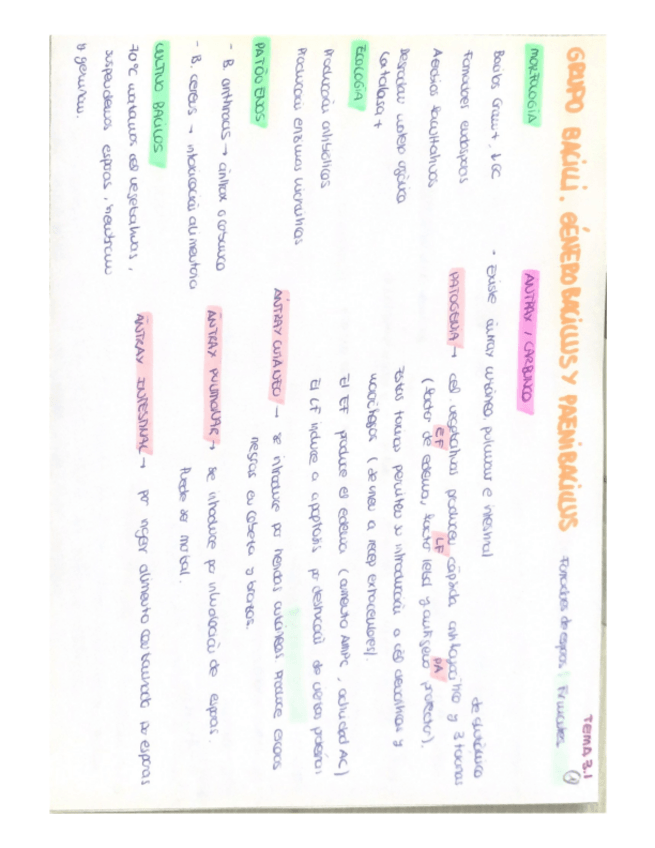 TEMA 3.1
1
GRUPO BACILLI. GÉNERO BACILLUS Y PAENIBACILLUS
Formadores de esporas. Firmicutes
MORFOLOGÍA
Bacilos Gram+, ↓GC
Formadores endosporas
Aerobios facultativos
Degradan materia orgánica
Catalasa +
ECOLOGÍA
Producción antibióticos
Producción enzimas
PATÓGENOS
- B. anthracis → ántrax o carbunco
- B. cereus → intoxicación alimentaria
CULTIVO BACILOS
70°C matamos cel vegetativas,
suspendemos esporas, incubamos
y germinan.
ÁNTRAX / CARBUNCO
- Existe ántrax cutáneo, pulmonar e intestinal
de glutámico
PATOGENIA → cel. vegetativas producen cápsula antifagocítica y 3 toxinas
EF LF PA
(factor de edema, factor letal y antígeno protector).
Estas toxinas permiten su introducción a cel dendríticas y
macrófagos (se unen a recep extracelulares).
El EF produce el edema (aumento AMPc, actividad AC)
El LF induce a apoptosis por destrucción de ciertas proteínas
ÁNTRAX CUTÁNEO → se introduce por heridas cutáneas. Produce escaras
negras en cabeza y brazos.
ÁNTRAX PULMONAR → se introduce por inhalación de esporas.
Puede ser mortal.
ÁNTRAX INTESTINAL → por ingerir alimento contaminado por esporas